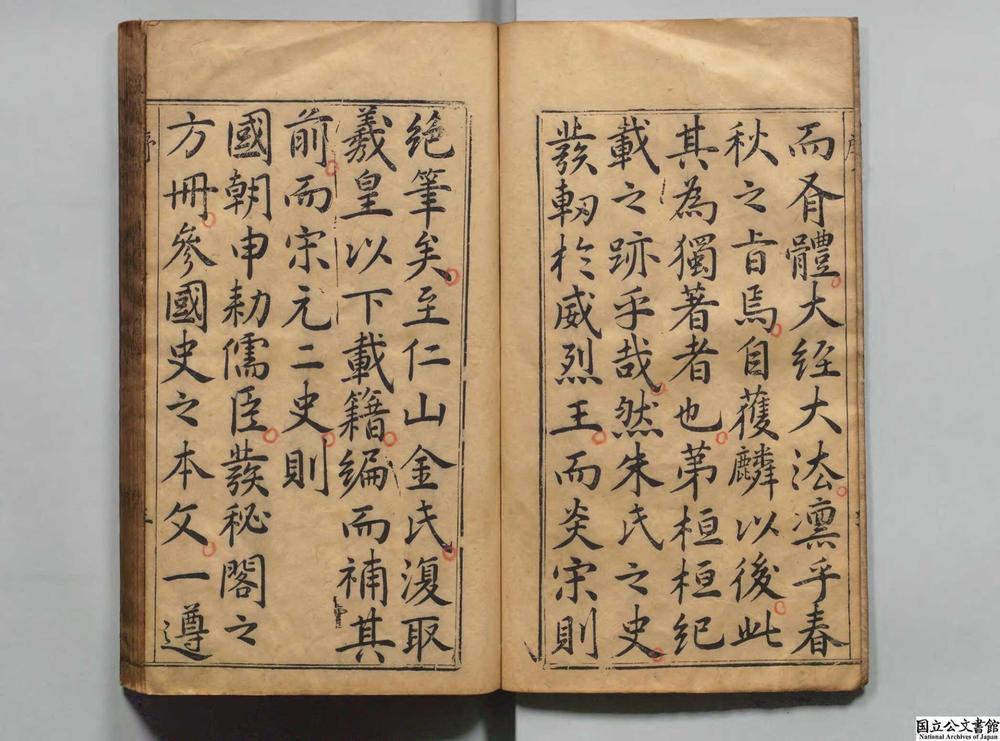 而脊體大經大法凜乎春
秋之旨焉自獲麟以後此
其為獨著者也第桓桓紀
載之跡乎哉然朱氏之史
發軔於威烈王而炎宋則
絕筆矣至仁山金氏復取
羲皇以下載籍編而補其
前而宋元二史則
國朝申勅儒臣發秘閣之
方冊參國史之本文一遵
国立公文書館
National Archives of Japan